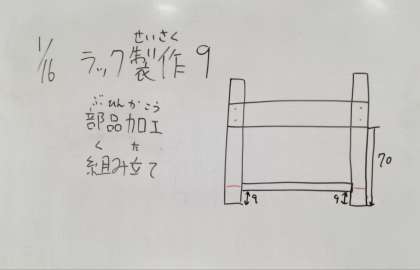 1/16 ラック製作 9
せいさく
部品加工
ぶひんかこう
組み立て
く た
70
9 9